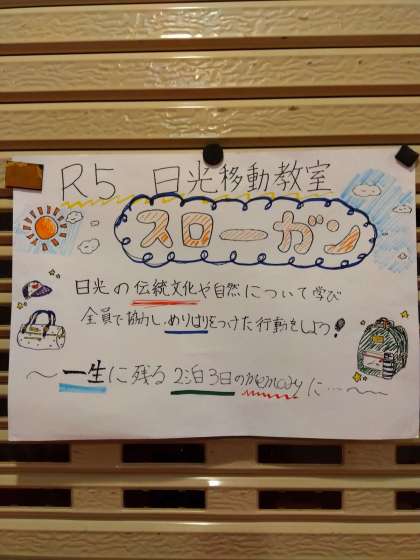 R5 日光移動教室
スローガン
日光の伝統文化や自然について学び
全員で協力し、めりはりをつけた行動をしよう!
〜一生に残る2泊3日のmemoryに…〜